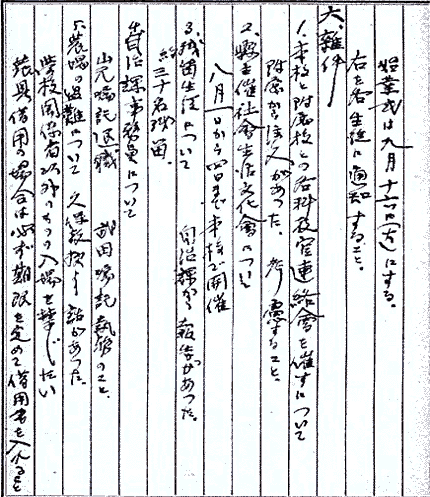 始業式は九月十六日(土)にする。
右を各生徒に通知すること。
六、雑件
1. 本校と附属校との各科教官連絡会を催すについて
附属から注文があった。考慮すること。
2. 縣主催社会生活文化会について
八月一日から四日まで本校で開催
3. 残留生徒について 自治課から報告があった。
約三十名残留
4. 自治課事務員について
山元嘱託退職 武田嘱託執務のこと
5. 農場の盗難について 久保教授より話があった。
学校関係者以外のものの入場を禁じたい
農具借用の場合は必ず期限を定めて借用書を入れること